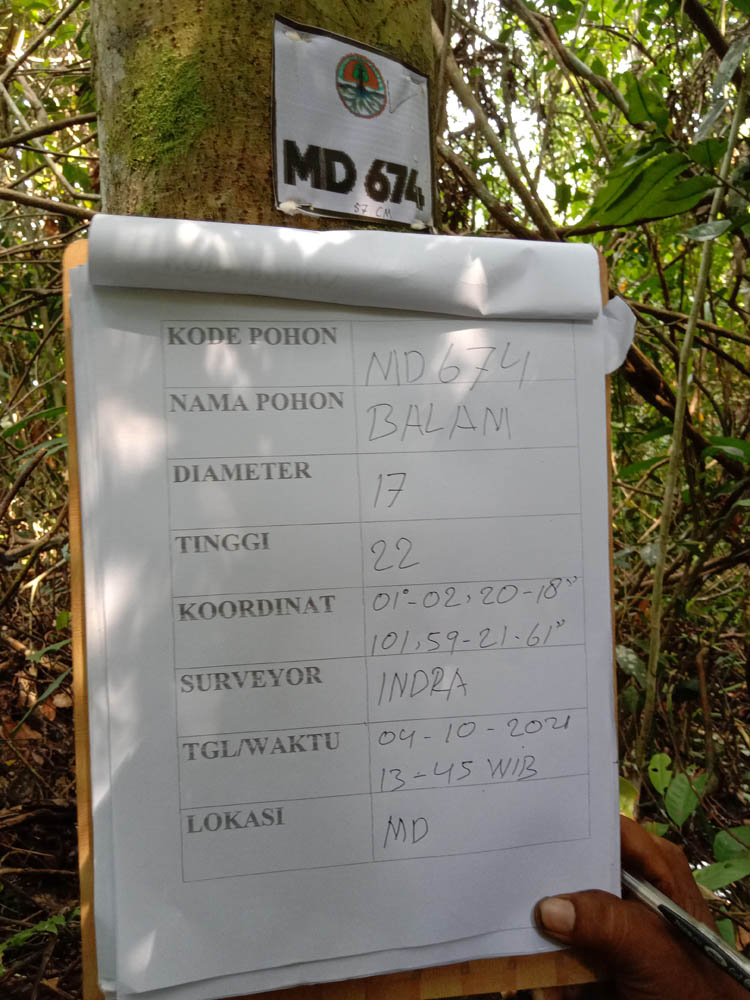 MD 674
57 CM
KODE POHON MD 674
NAMA POHON BALAM
DIAMETER 17
TINGGI 22
KOORDINAT 01°-02,20-18"
101,59-21-61"
SURVEYOR INDRA
TGL/WAKTU 04-10-2021
13-45 WIB
LOKASI MD